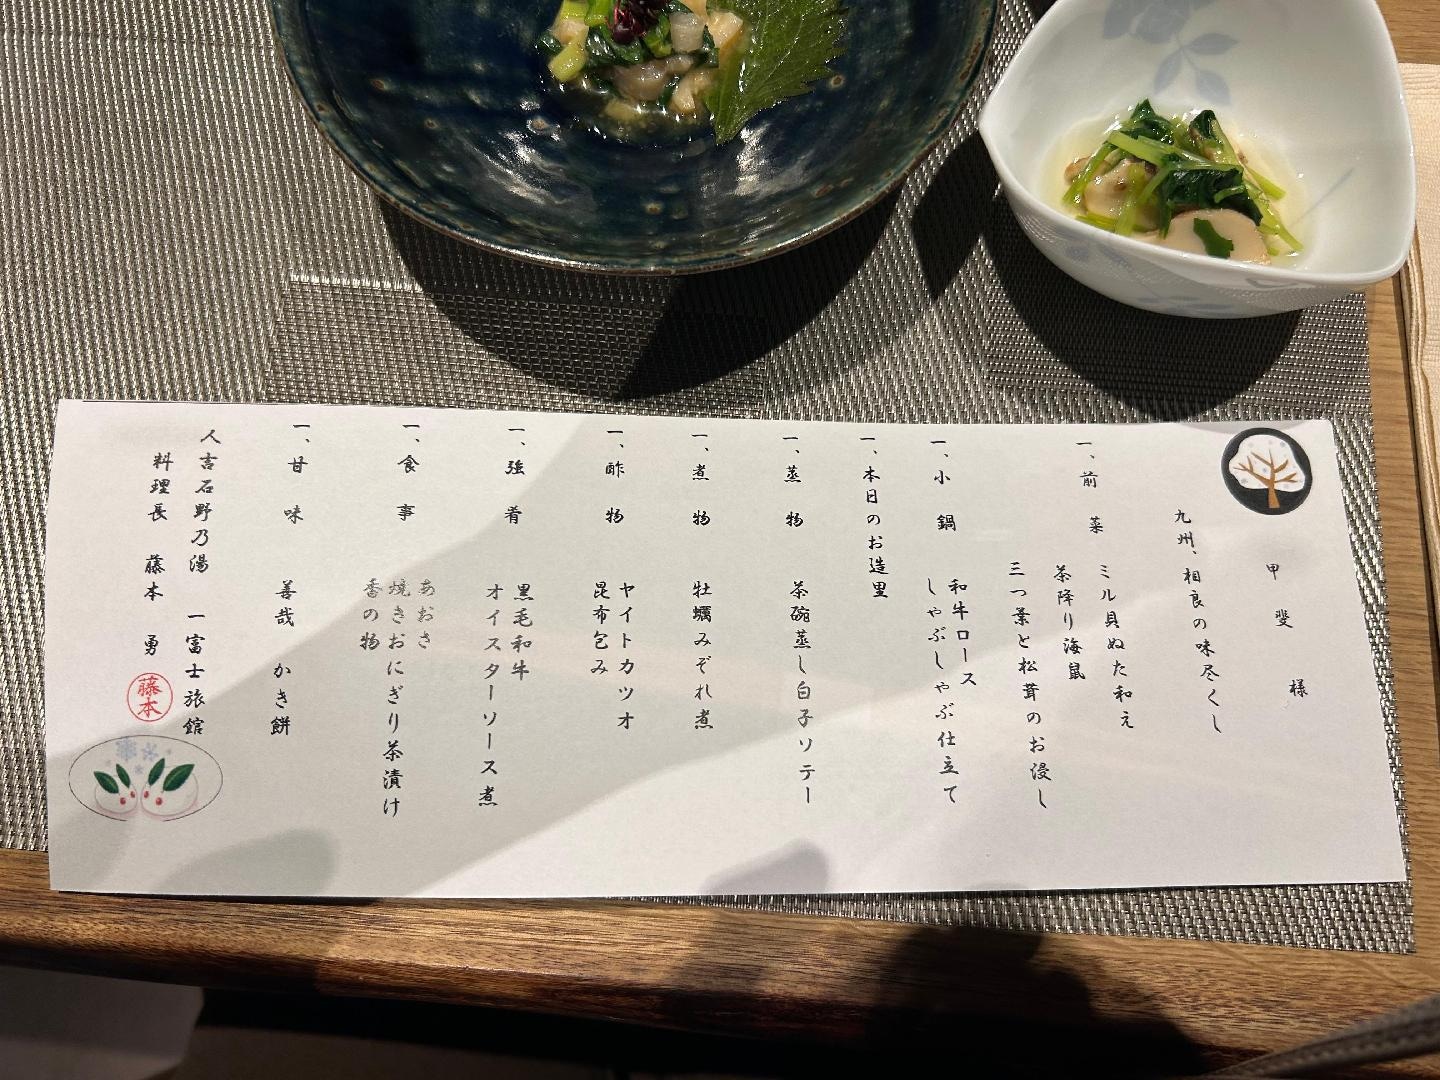 甲斐 様
九州、相良の味尽くし
一、前菜 ミル貝ぬた和え
茶降り海鼠
三つ葉と松茸のお浸し
一、小鍋 和牛ロース
しゃぶしゃぶ仕立て
一、本日のお造里
一、蒸物 茶碗蒸し白子ソテー
一、煮物 牡蠣みぞれ煮
一、酢物 ヤイトカツオ
昆布包み
一、強肴 黒毛和牛
オイスターソース煮
一、食事 あおさ
焼きおにぎり茶漬け
香の物
一、甘味 善哉 かき餅
人吉石野乃湯 一富士旅館
料理長 藤本 勇
藤本